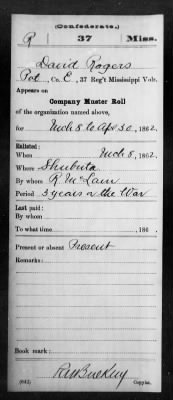 (Confederate.)
R 37 Miss.
David Rogers
Pvt, Co. E, 37 Reg't Mississippi Vols.
Appears on
Company Muster Roll
of the organization named above,
for Mch 8 to Apr 30, 1862.
Enlisted:
When Mch 8, 1862.
Where Shubuta
By whom R McLain
Period 3 years or the War
Last paid:
By whom
To what time , 186 .
Present or absent Present
Remarks:
Book mark:
R W Buckley
(642) Copyist.